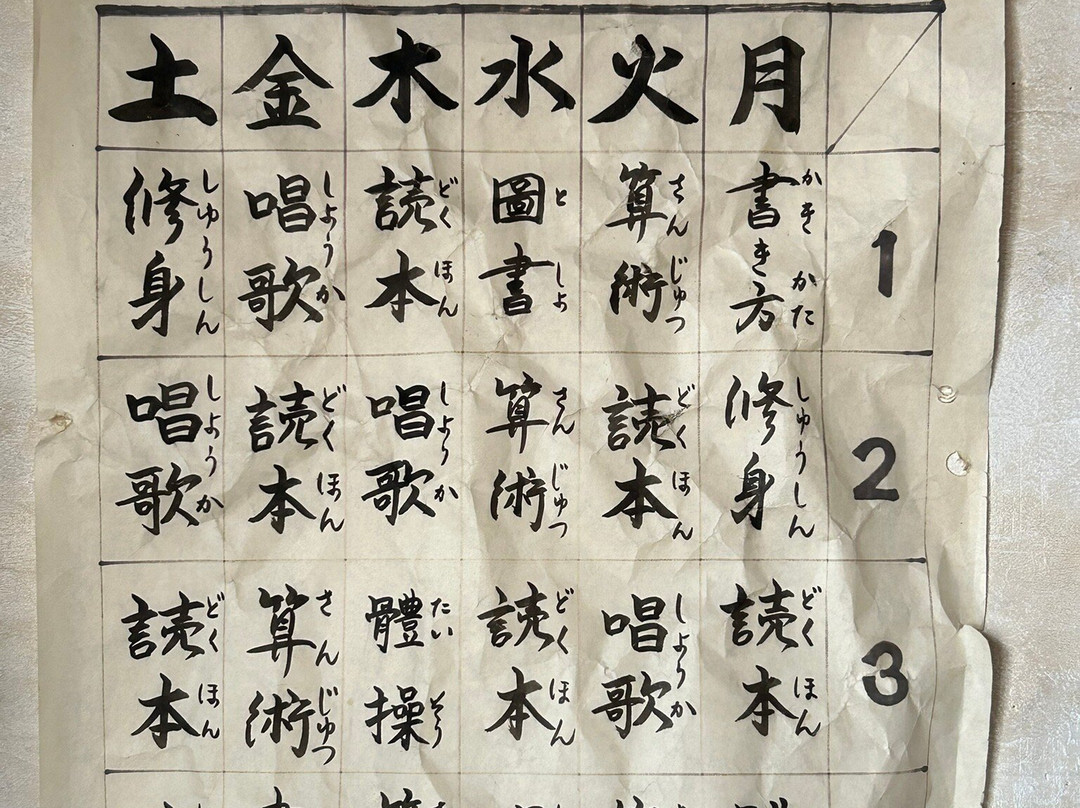 月 火 水 木 金 土
1
書き方
かきかた
算術
さんじゅつ
圖書
としょ
読本
どくほん
唱歌
しようか
修身
しゅうしん
2
修身
しゅうしん
読本
どくほん
算術
さんじゅつ
唱歌
しようか
読本
どくほん
唱歌
しようか
3
読本
どくほん
唱歌
しようか
読本
どくほん
體操
たいそう
算術
さんじゅつ
読本
どくほん